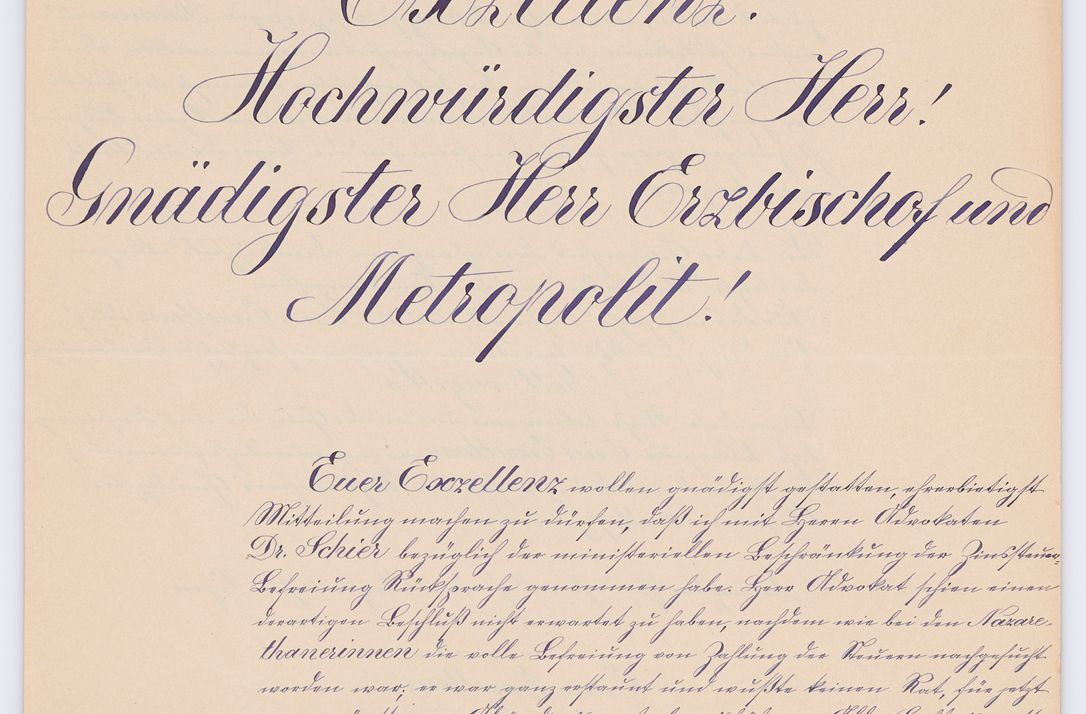 Exzellenz!
Hochwürdigster Herr!
Gnädigster Herr Erzbischof und
Metropolit!
Euer Exzellenz wollen gnädigst gestatten, ehrerbietigst
Mitteilung machen zu dürfen, daß ich mit Herrn Advokaten
Dr. Schier bezüglich der ministeriellen Beschränkung der Zinssteuer-
Befreiung Rücksprache genommen habe. Herr Advokat schien einen
derartigen Beschluß nicht erwartet zu haben, nachdem wie bei den Nazare-
thanerinnen die volle Befreiung von Zahlung der Steuern nachgesucht
worden war; er war ganz erstaunt und wußte keinen Rat, für jetzt